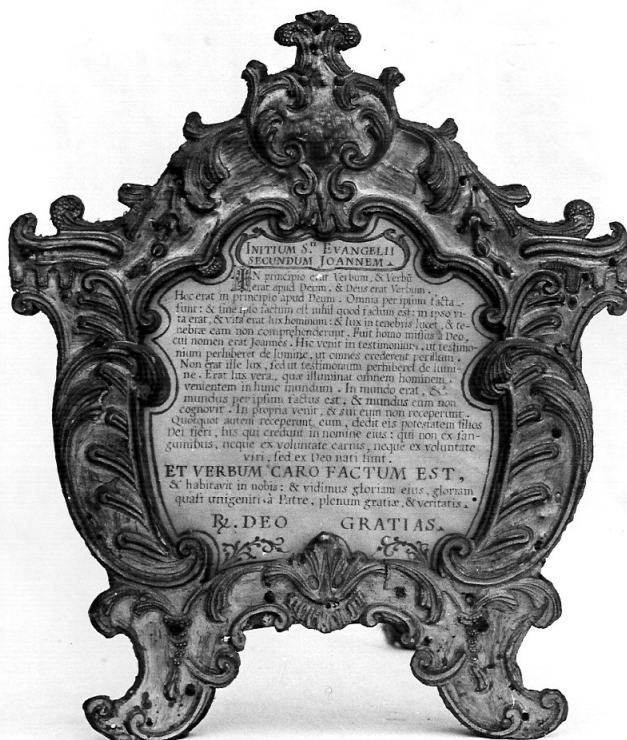 INITIUM S.ti EVANGELII
SECUNDUM JOANNEM.
IN principio erat Verbum, & Verbũ
erat apud Deum, & Deus erat Verbum.
Hoc erat in principio apud Deum. Omnia per ipsum facta
sunt: & sine ipso factum est nihil quod factum est: in ipso vi-
ta erat, & vita erat lux hominum: & lux in tenebris lucet, & te-
nebræ eam non comprehenderunt. Fuit homo missus à Deo,
cui nomen erat Joannes. Hic venit in testimonium, ut testimo-
nium perhiberet de lumine, ut omnes crederent per illum.
Non erat ille lux, sed ut testimonium perhiberet de lumi-
ne. Erat lux vera, quæ illuminat omnem hominem
venientem in hunc mundum. In mundo erat, &
mundus per ipsum factus est, & mundus eum non
cognovit. In propria venit, & sui eum non receperunt.
Quotquot autem receperunt eum, dedit eis potestatem filios
Dei fieri, his qui credunt in nomine eius: qui non ex san-
guinibus, neque ex voluntate carnis, neque ex voluntate
viri, sed ex Deo nati sunt.
ET VERBUM CARO FACTUM EST,
& habitavit in nobis: & vidimus gloriam eius, gloriam
quasi unigeniti à Patre, plenum gratiæ, & veritatis.
℞. DEO GRATIAS.